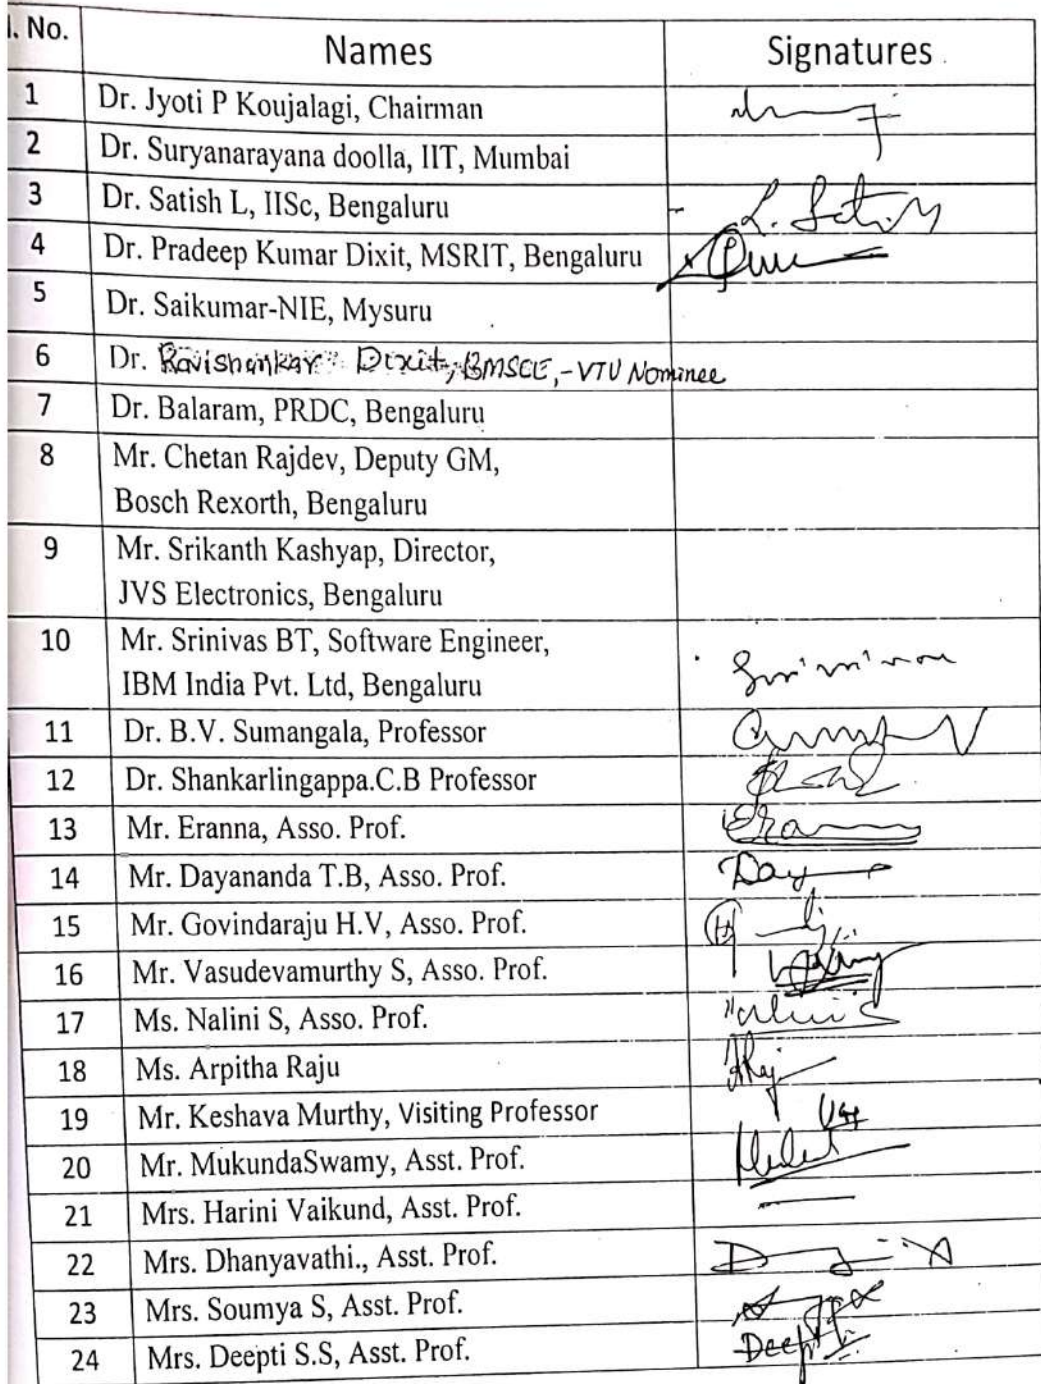 l. No. Names Signatures
1 Dr. Jyoti P Koujalagi, Chairman
2 Dr. Suryanarayana doolla, IIT, Mumbai
3 Dr. Satish L, IISc, Bengaluru L. Satish
4 Dr. Pradeep Kumar Dixit, MSRIT, Bengaluru
5 Dr. Saikumar-NIE, Mysuru
6 Dr. Ravishankar Dixit, BMSCE, -VTU Nominee
7 Dr. Balaram, PRDC, Bengaluru
8 Mr. Chetan Rajdev, Deputy GM,
Bosch Rexorth, Bengaluru
9 Mr. Srikanth Kashyap, Director,
JVS Electronics, Bengaluru
10 Mr. Srinivas BT, Software Engineer,
IBM India Pvt. Ltd, Bengaluru
11 Dr. B.V. Sumangala, Professor
12 Dr. Shankarlingappa.C.B Professor
13 Mr. Eranna, Asso. Prof.
14 Mr. Dayananda T.B, Asso. Prof. Day
15 Mr. Govindaraju H.V, Asso. Prof.
16 Mr. Vasudevamurthy S, Asso. Prof.
17 Ms. Nalini S, Asso. Prof. Nalini S
18 Ms. Arpitha Raju
19 Mr. Keshava Murthy, Visiting Professor
20 Mr. MukundaSwamy, Asst. Prof.
21 Mrs. Harini Vaikund, Asst. Prof.
22 Mrs. Dhanyavathi., Asst. Prof.
23 Mrs. Soumya S, Asst. Prof.
24 Mrs. Deepti S.S, Asst. Prof. Deepti